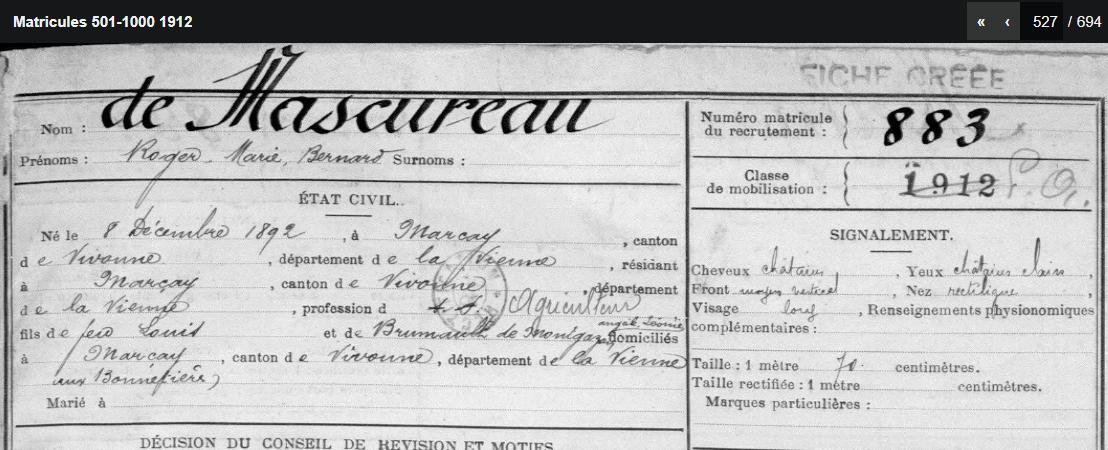 Matricules 501-1000 1912
« ‹ 527 / 694
FICHE CRÉÉE
de Mascureau
Nom :
Prénoms : Roger, Marie, Bernard Surnoms :
Numéro matricule
du recrutement : 883
Classe
de mobilisation : 1912
ÉTAT CIVIL.
Né le 8 Décembre 1892, à Marçay, canton
de Vivonne, département de la Vienne, résidant
à Marçay, canton de Vivonne, département
de la Vienne, profession d Agriculteur
fils de feu Louis et de Brumault de Montgazon angèle Léonie domiciliés
à Marcay, canton de Vivonne, département de la Vienne
aux Bonnefière)
Marié à
DÉCISION DU CONSEIL DE REVISION ET MOTIFS
SIGNALEMENT.
Cheveux châtains, Yeux châtains clairs,
Front moyen vertical, Nez rectiligne
Visage long, Renseignements physionomiques
complémentaires :
Taille : 1 mètre 70 centimètres.
Taille rectifiée : 1 mètre centimètres.
Marques particulières :